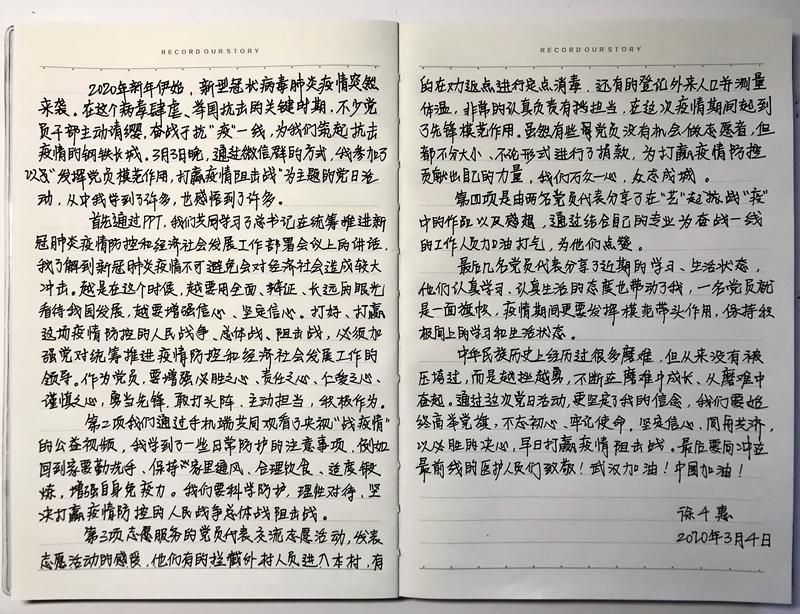 RECORD OUR STORY
2020年新年伊始，新型冠状病毒肺炎疫情突然
来袭。在这个病毒肆虐、举国抗击的关键时期，不少党
员干部主动请缨，奋战于抗"疫"一线，为我们筑起抗击
疫情的钢铁长城。3月3日晚，通过微信群的方式，我参加了
以"发挥党员模范作用，打赢疫情阻击战"为主题的党日活
动，从中我学到了许多，也感悟到了许多。
首先通过PPT，我们共同学习了总书记在统筹推进新
冠肺炎疫情防控和经济社会发展工作部署会议上的讲话，
我了解到新冠肺炎疫情不可避免会对经济社会造成较大
冲击。越是在这个时候，越要用全面、辩证、长远的眼光
看待我国发展，越要增强信心、坚定信心。打好、打赢
这场疫情防控的人民战争、总体战、阻击战，必须加
强党对统筹推进疫情防控和经济社会发展工作的
领导。作为党员，要增强必胜之心、责任之心、仁爱之心、
谨慎之心，勇当先锋、敢打头阵、主动担当，积极作为。
第二项我们通过手机端共同观看了央视"战疫情"
的公益视频，我学到了一些日常防护的注意事项，例如
回到家要勤洗手、保持家里通风、合理饮食、适度锻
炼，增强自身免疫力。我们要科学防护，理性对待，坚
决打赢疫情防控的人民战争总体战阻击战。
第三项志愿服务的党员代表交流志愿活动，发表
志愿活动的感受，他们有的拦截外村人员进入本村，有
RECORD OUR STORY
的在劝返点进行定点消毒，还有的登记外来人口并测量
体温，非常的认真负责有担当，在这次疫情期间起到
了先锋模范作用。虽然有些党员没有机会做志愿者，但
都不分大小、不论形式进行了捐款，为打赢疫情防控
贡献出自己的力量，我们万众一心，众志成城。
第四项是由两名党员代表分享了在"艺"起抗战"疫"
中的作品以及感想，通过结合自己的专业为奋战一线
的工作人员加油打气，为他们点赞。
最后几名党员代表分享了近期的学习、生活状态，
他们认真学习、认真生活的态度也带动了我，一名党员就
是一面旗帜，疫情期间更要发挥模范带头作用，保持积
极向上的学习和生活状态。
中华民族历史上经历过很多磨难，但从来没有被
压垮过，而是越挫越勇，不断在磨难中成长、从磨难中
奋起。通过这次党日活动，更坚定了我的信念，我们要始
终高举党旗，不忘初心、牢记使命，坚定信心、同舟共济，
以必胜的决心，早日打赢疫情阻击战。最后要向冲在
最前线的医护人员们致敬！武汉加油！中国加油！
徐千惠
2020年3月4日